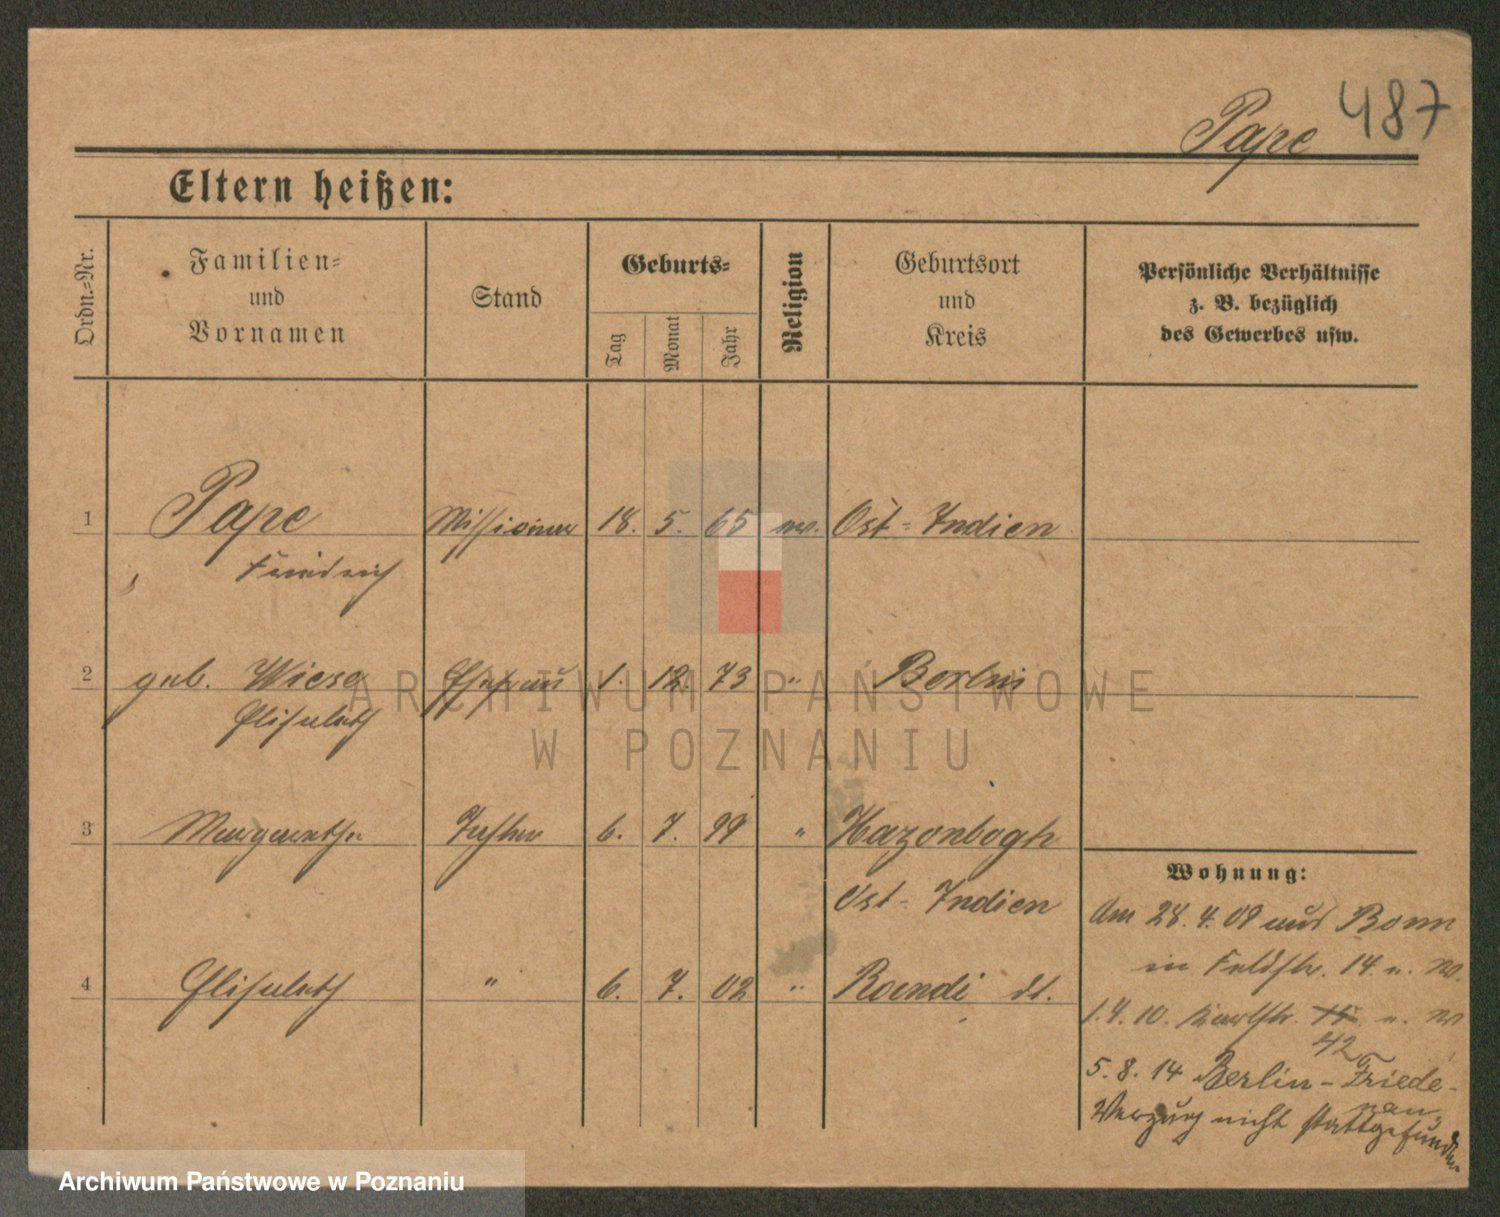 487
Pape
Eltern heißen:
Ordn.-Nr.
Familien-
und
Vornamen
Stand
Geburts-
Tag
Monat
Jahr
Religion
Geburtsort
und
Kreis
Persönliche Verhältnisse
z. B. bezüglich
des Gewerbes usw.
1 Pape Missionar 18. 5. 65 ev. Ost-Indien
Friedrich
2 geb. Wiese Ehefrau 1. 12. 73 " Berlin
Elisabeth
3 Margarethe Tochter 6. 7. 99 " Hazonbogh
Ost-Indien
4 Elisabeth " 6. 7. 02 " Roendi dt.
Wohnung:
Am 28.4.09 aus Bonn
in Feldstr. 14 u. W.
1.4.10. Karlstr. u. W
42
5.8.14 Berlin-Friede-
nau.
Verzug nicht stattgefunden
ARCHIWUM PAŃSTWOWE
W POZNANIU
Archiwum Państwowe w Poznaniu